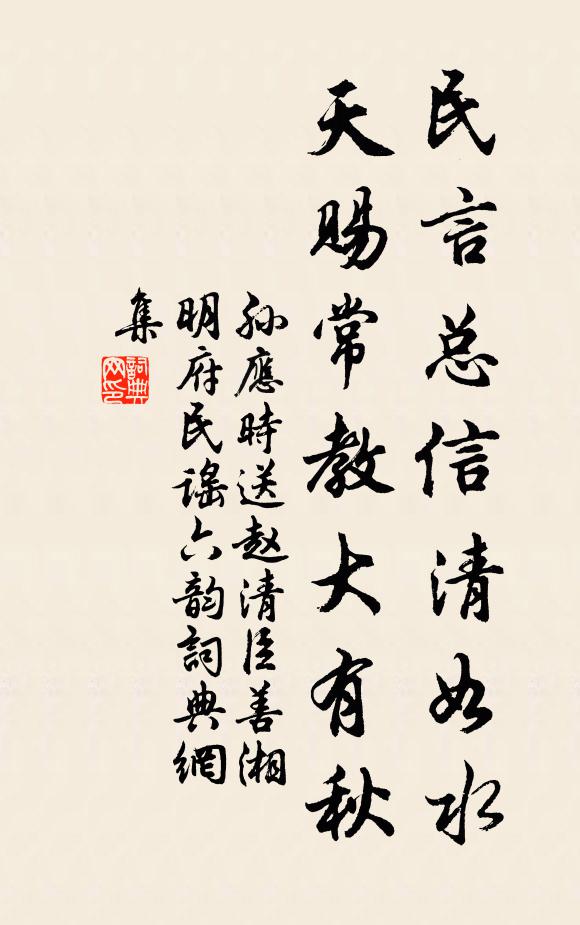 民言总信清如水
天赐常教大有秋
孙應時送赵清臣善湘
明府民謠六韵詞典網
集
詞典网印